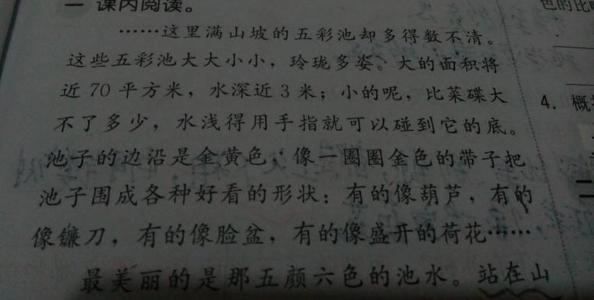 一 课内阅读。
……这里满山坡的五彩池却多得数不清。
这些五彩池大大小小，玲珑多姿。大的面积将
近70平方米，水深近3米；小的呢，比菜碟大
不了多少，水浅得用手指就可以碰到它的底。
池子的边沿是金黄色，像一圈圈金色的带子把
池子围成各种好看的形状：有的像葫芦，有的
像镰刀，有的像脸盆，有的像盛开的荷花……
最美丽的是那五颜六色的池水。站在山
色的比
4. 概
二